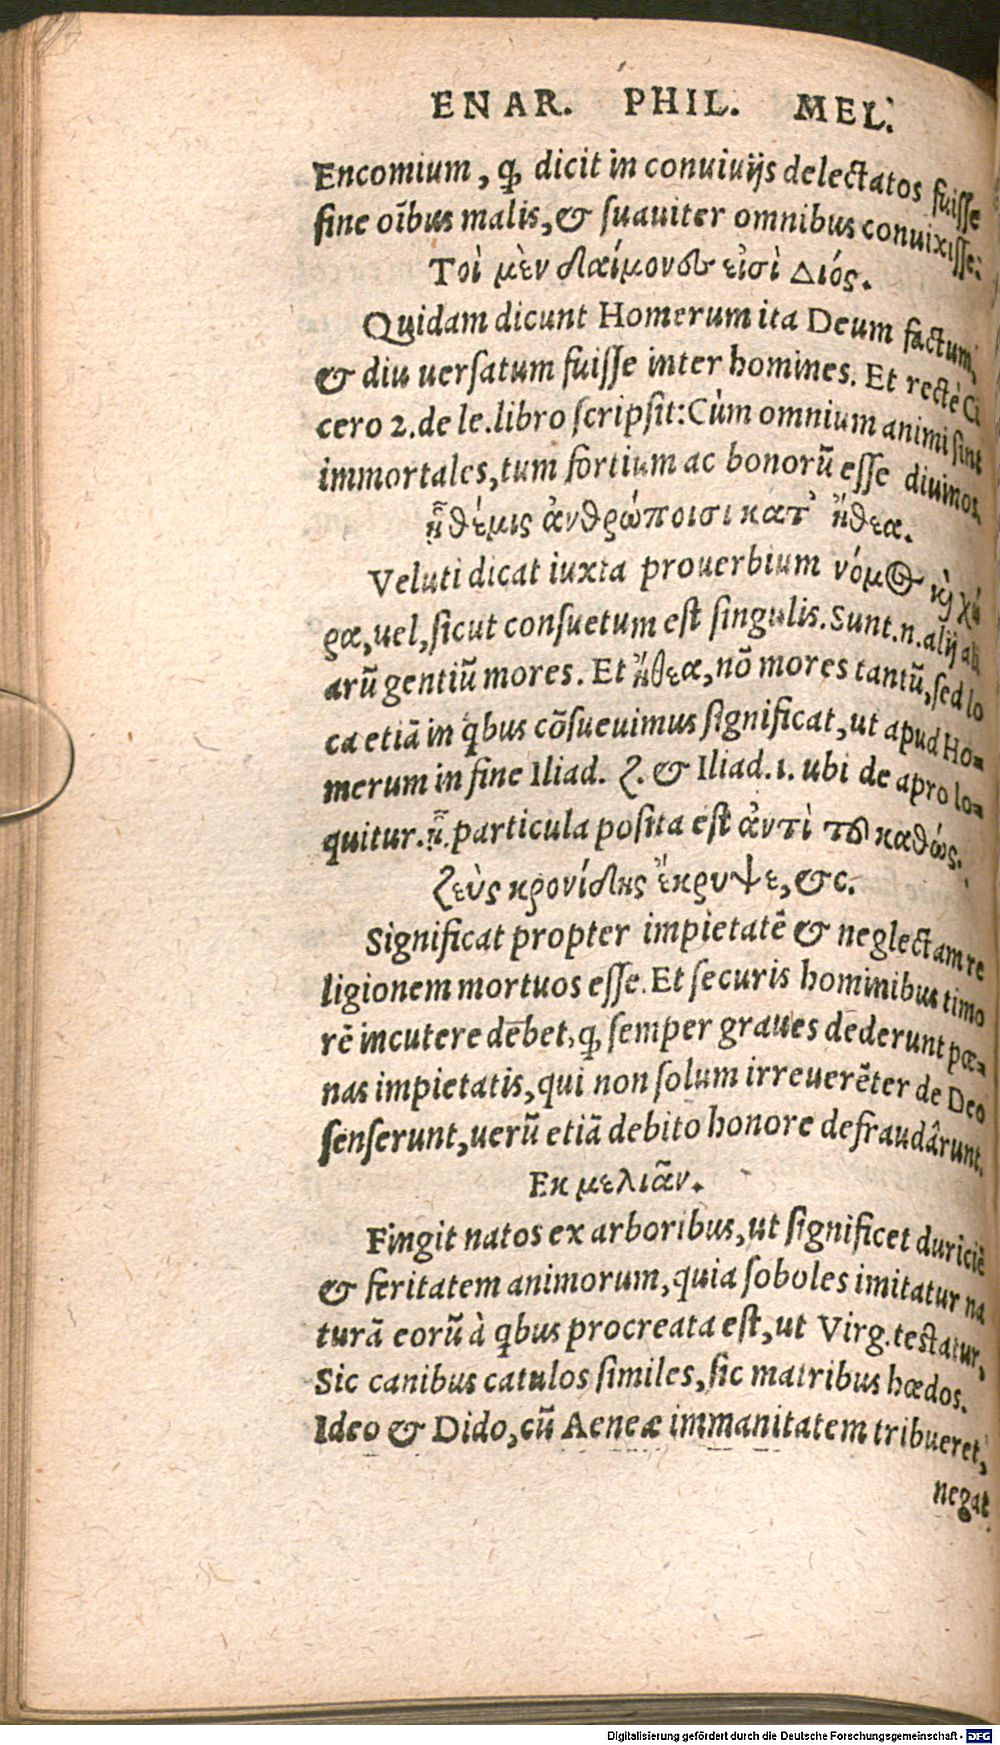 ENAR. PHIL. MEL.
Encomium, ꝙ dicit in conuiuijs delectatos fuisse
sine oı̃bus malis, & suauiter omnibus conuixisse:
Τοὶ μὲν δαίμονες εἰσὶ Διός.
Quidam dicunt Homerum ita Deum factum,
& diu uersatum fuisse inter homines. Et rectè Ci
cero 2. de le. libro scripsit: Cùm omnium animi sint
immortales, tum fortium ac bonorũ esse diuinos.
ᾗ θέμις ἀνθρώποισι κατ' ἤθεα.
Veluti dicat iuxta prouerbium νόμος καὶ χώ
ρα, uel, sicut consuetum est singulis. Sunt .n. alij ali
arũ gentiũ mores. Et ἤθεα, nõ mores tantũ, sed lo
ca etiã in qbus cõsueuimus significat, ut apud Ho-
merum in fine Iliad. ζ. & Iliad. ι. ubi de apro lo-
quitur. ᾗ. particula posita est ἀντὶ τοῦ καθώς.
ζεὺς κρονίδης ἔκρυψε, &c.
Significat propter impietatẽ & neglectam re
ligionem mortuos esse. Et securis hominibus timo
rẽ incutere debet, ꝙ semper graues dederunt pœ-
nas impietatis, qui non solum irreuerẽter de Deo
senserunt, uerũ etiã debito honore defraudârunt.
Εκ μελιᾶν.
Fingit natos ex arboribus, ut significet duriciẽ
& feritatem animorum, quia soboles imitatur na
turã eorũ à qbus procreata est, ut Virg. testatur,
Sic canibus catulos similes, sic matribus hœdos.
Ideo & Dido, cũ Aeneæ immanitatem tribueret,
negat
Digitalisierung gefördert durch die Deutsche Forschungsgemeinschaft - DFG